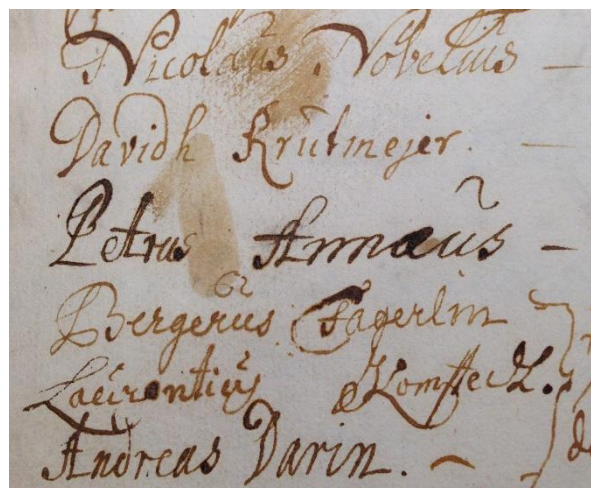 Nicolaus Nobelius –
Davidh Krutmejer. –
Petrus Annæus –
Bergerus Fagerlin
Laurentius
Andreas Darin. –